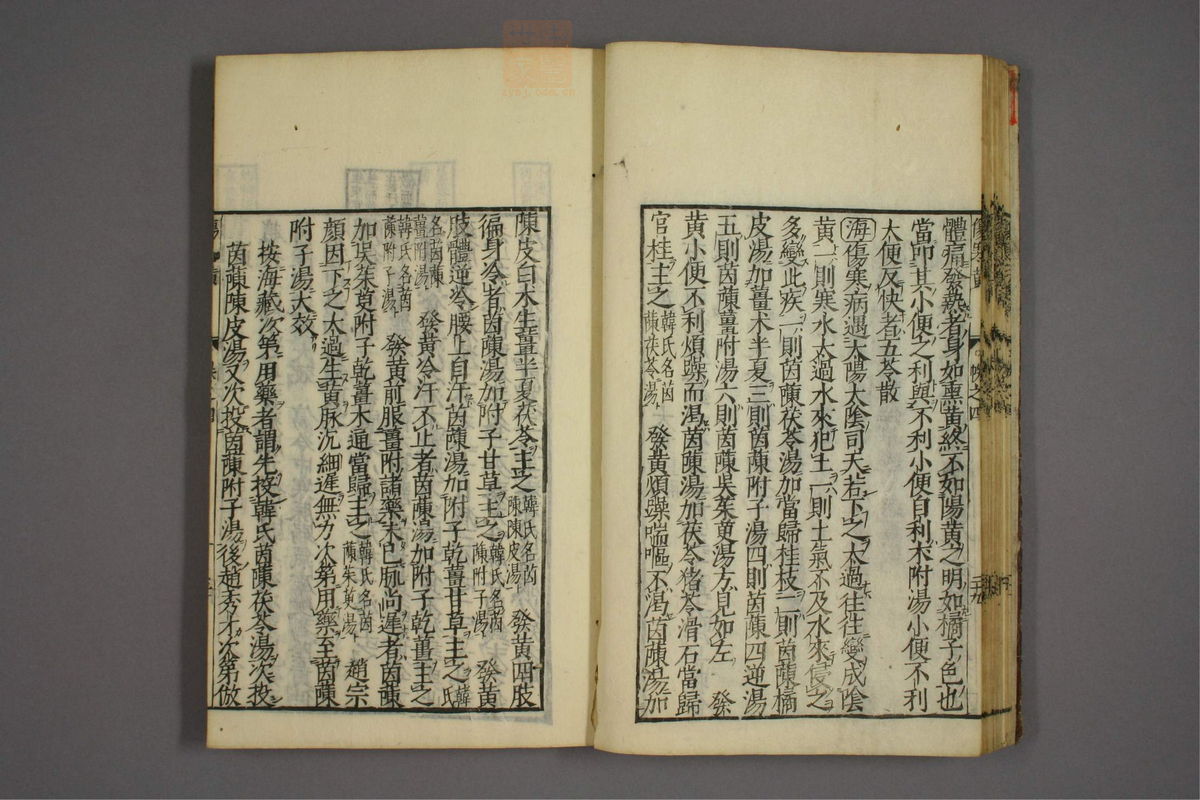 體痛發熱者身如熏黃終不如陽黃之明如橘子色也
當叩其小便之利與不利小便自利朮附湯小便不利
大便反快者五苓散
海傷寒病遇太陽太陰司天若下之太過往往變成陰
黃一則寒水太過水來犯土一則土氣不及水來侵之
多變此疾一則茵蔯茯苓湯加當歸桂枝二則茵蔯橘
皮湯加薑朮半夏三則茵蔯附子湯四則茵蔯四逆湯
五則茵蔯薑附湯六則茵蔯吳茱萸湯方見如左 發
黃小便不利煩躁而渴茵蔯湯加茯苓猪苓滑石當歸
官桂主之韓氏名茵蔯茯苓湯 發黃煩躁喘嘔不渴茵蔯湯加
陳皮白朮生薑半夏茯苓主之韓氏名茵蔯陳皮湯 發黃四肢
徧身冷者茵蔯湯加附子甘草主之韓氏名茵蔯附子湯 發黃
肢體逆冷腰上自汗茵蔯湯加附子乾薑甘草主之韓氏
名茵蔯薑附湯 發黃冷汗不止者茵蔯湯加附子乾薑主之
韓氏名茵蔯附子湯 發黃前服薑附諸藥未已脉尚遲者茵蔯
加吳茱萸附子乾薑木通當歸主之韓氏名茵蔯茱萸湯 趙宗
顏因下之太過生黃脉沉細遲無力次第用藥至茵蔯
附子湯大效
按海藏次第用藥者謂先投韓氏茵蔯茯苓湯次投
茵蔯陳皮湯又次投茵蔯附子湯後趙秀才次第倣